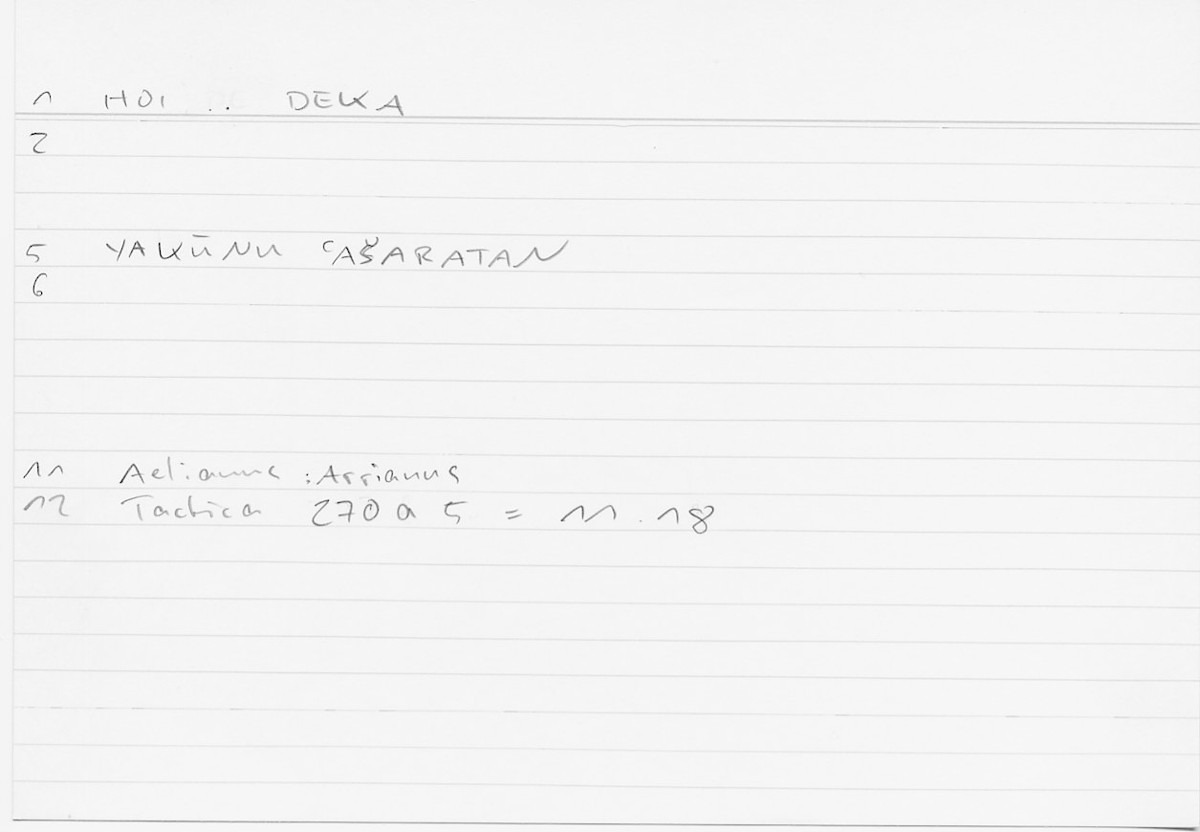 1 HOI .. DEKA
2
5 YAKŪNU ʿAŠARATAN
6
11 Aelianus : Arrianus
12 Tactica 270 a 5 = 11.18